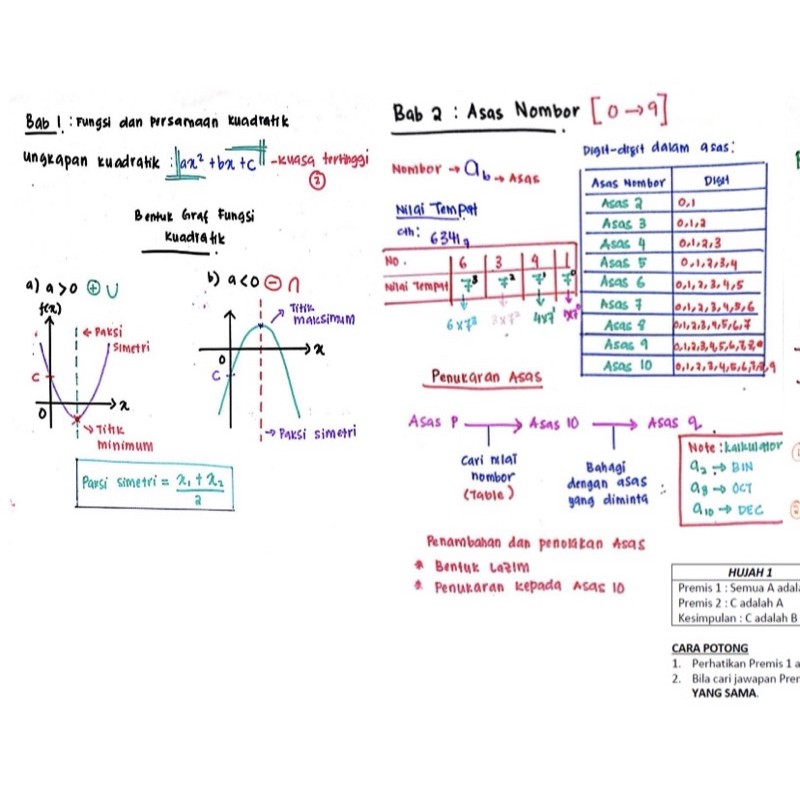 Bab 1 : Fungsi dan persamaan kuadratik
ungkapan kuadratik : ax² + bx + c - kuasa tertinggi
②
Bentuk Graf Fungsi
Kuadratik
a) a > 0 ⊕ ∪
f(x)
← Paksi
simetri
c
0
x
→ Titik
minimum
b) a < 0 ⊖ ∩
→ Titik
maksimum
0
x
c
→ Paksi simetri
Paksi simetri = x₁ + x₂
2
Bab 2 : Asas Nombor [0 → 9]
Nombor → a b → Asas
Nilai Tempat
cth:
No. 6 3 4 1
Nilai Tempat 7³ 7² 7¹ 7⁰
6 x 7³ 3 x 7² 4x7¹
Digit-digit dalam asas:
Asas Nombor Digit
Asas 2 0,1
Asas 3 0,1,2
Asas 4 0,1,2,3
Asas 5 0,1,2,3,4
Asas 6 0,1,2,3,4,5
Asas 7 0,1,2,3,4,5,6
Asas 8 0,1,2,3,4,5,6,7
Asas 9
Asas 10
Penukaran Asas
Asas P → Asas 10 → Asas q
Cari nilai
nombor
(Table)
Bahagi
dengan asas
yang diminta
:
Note : kalkulator
a₂ → BIN
a₈ → OCT
a₁₀ → DEC
Penambahan dan penolakan Asas
* Bentuk Lazim
* Penukaran kepada Asas 10
HUJAH 1
Premis 1 : Semua A adal
Premis 2 : C adalah A
Kesimpulan : C adalah B
CARA POTONG
1. Perhatikan Premis 1 a
2. Bila cari jawapan Prer
YANG SAMA.